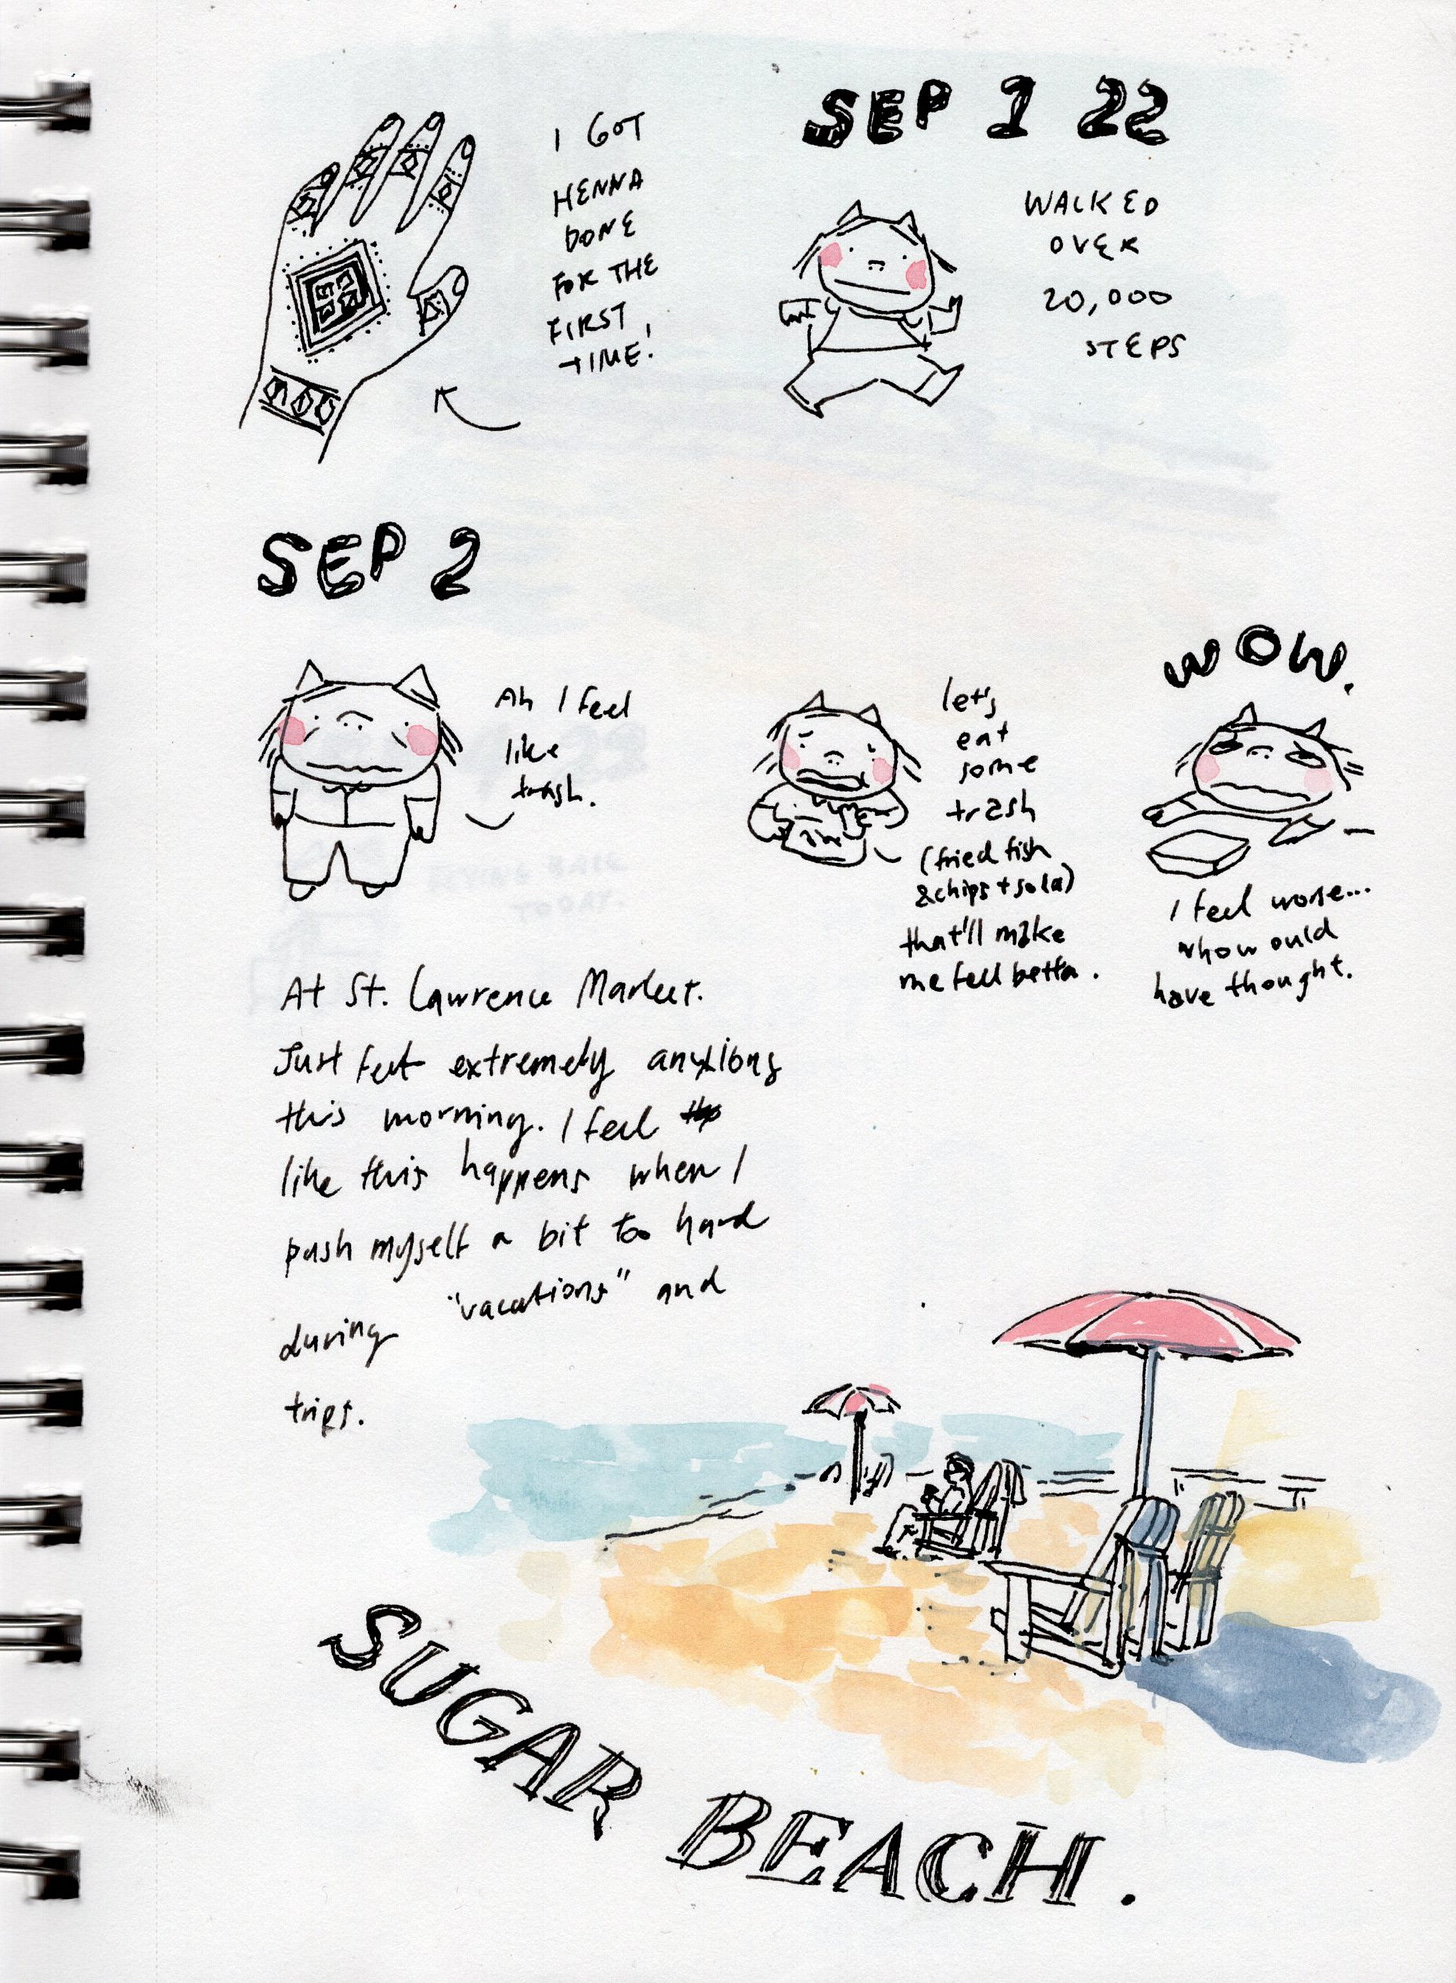 SEP 1 22
I GOT
HENNA
DONE
FOR THE
FIRST
TIME!
WALKED
OVER
20,000
STEPS
SEP 2
Ah I feel
like
trash.
let's
eat
some
trash
(fried fish
& chips + soda)
that'll make
me feel betta.
WOW.
I feel worse...
who would
have thought.
At St. Lawrence Market.
Just felt extremely anxious
this morning. I feel
like this happens when I
push myself a bit too hard
during "vacations" and
trips.
SUGAR BEACH.